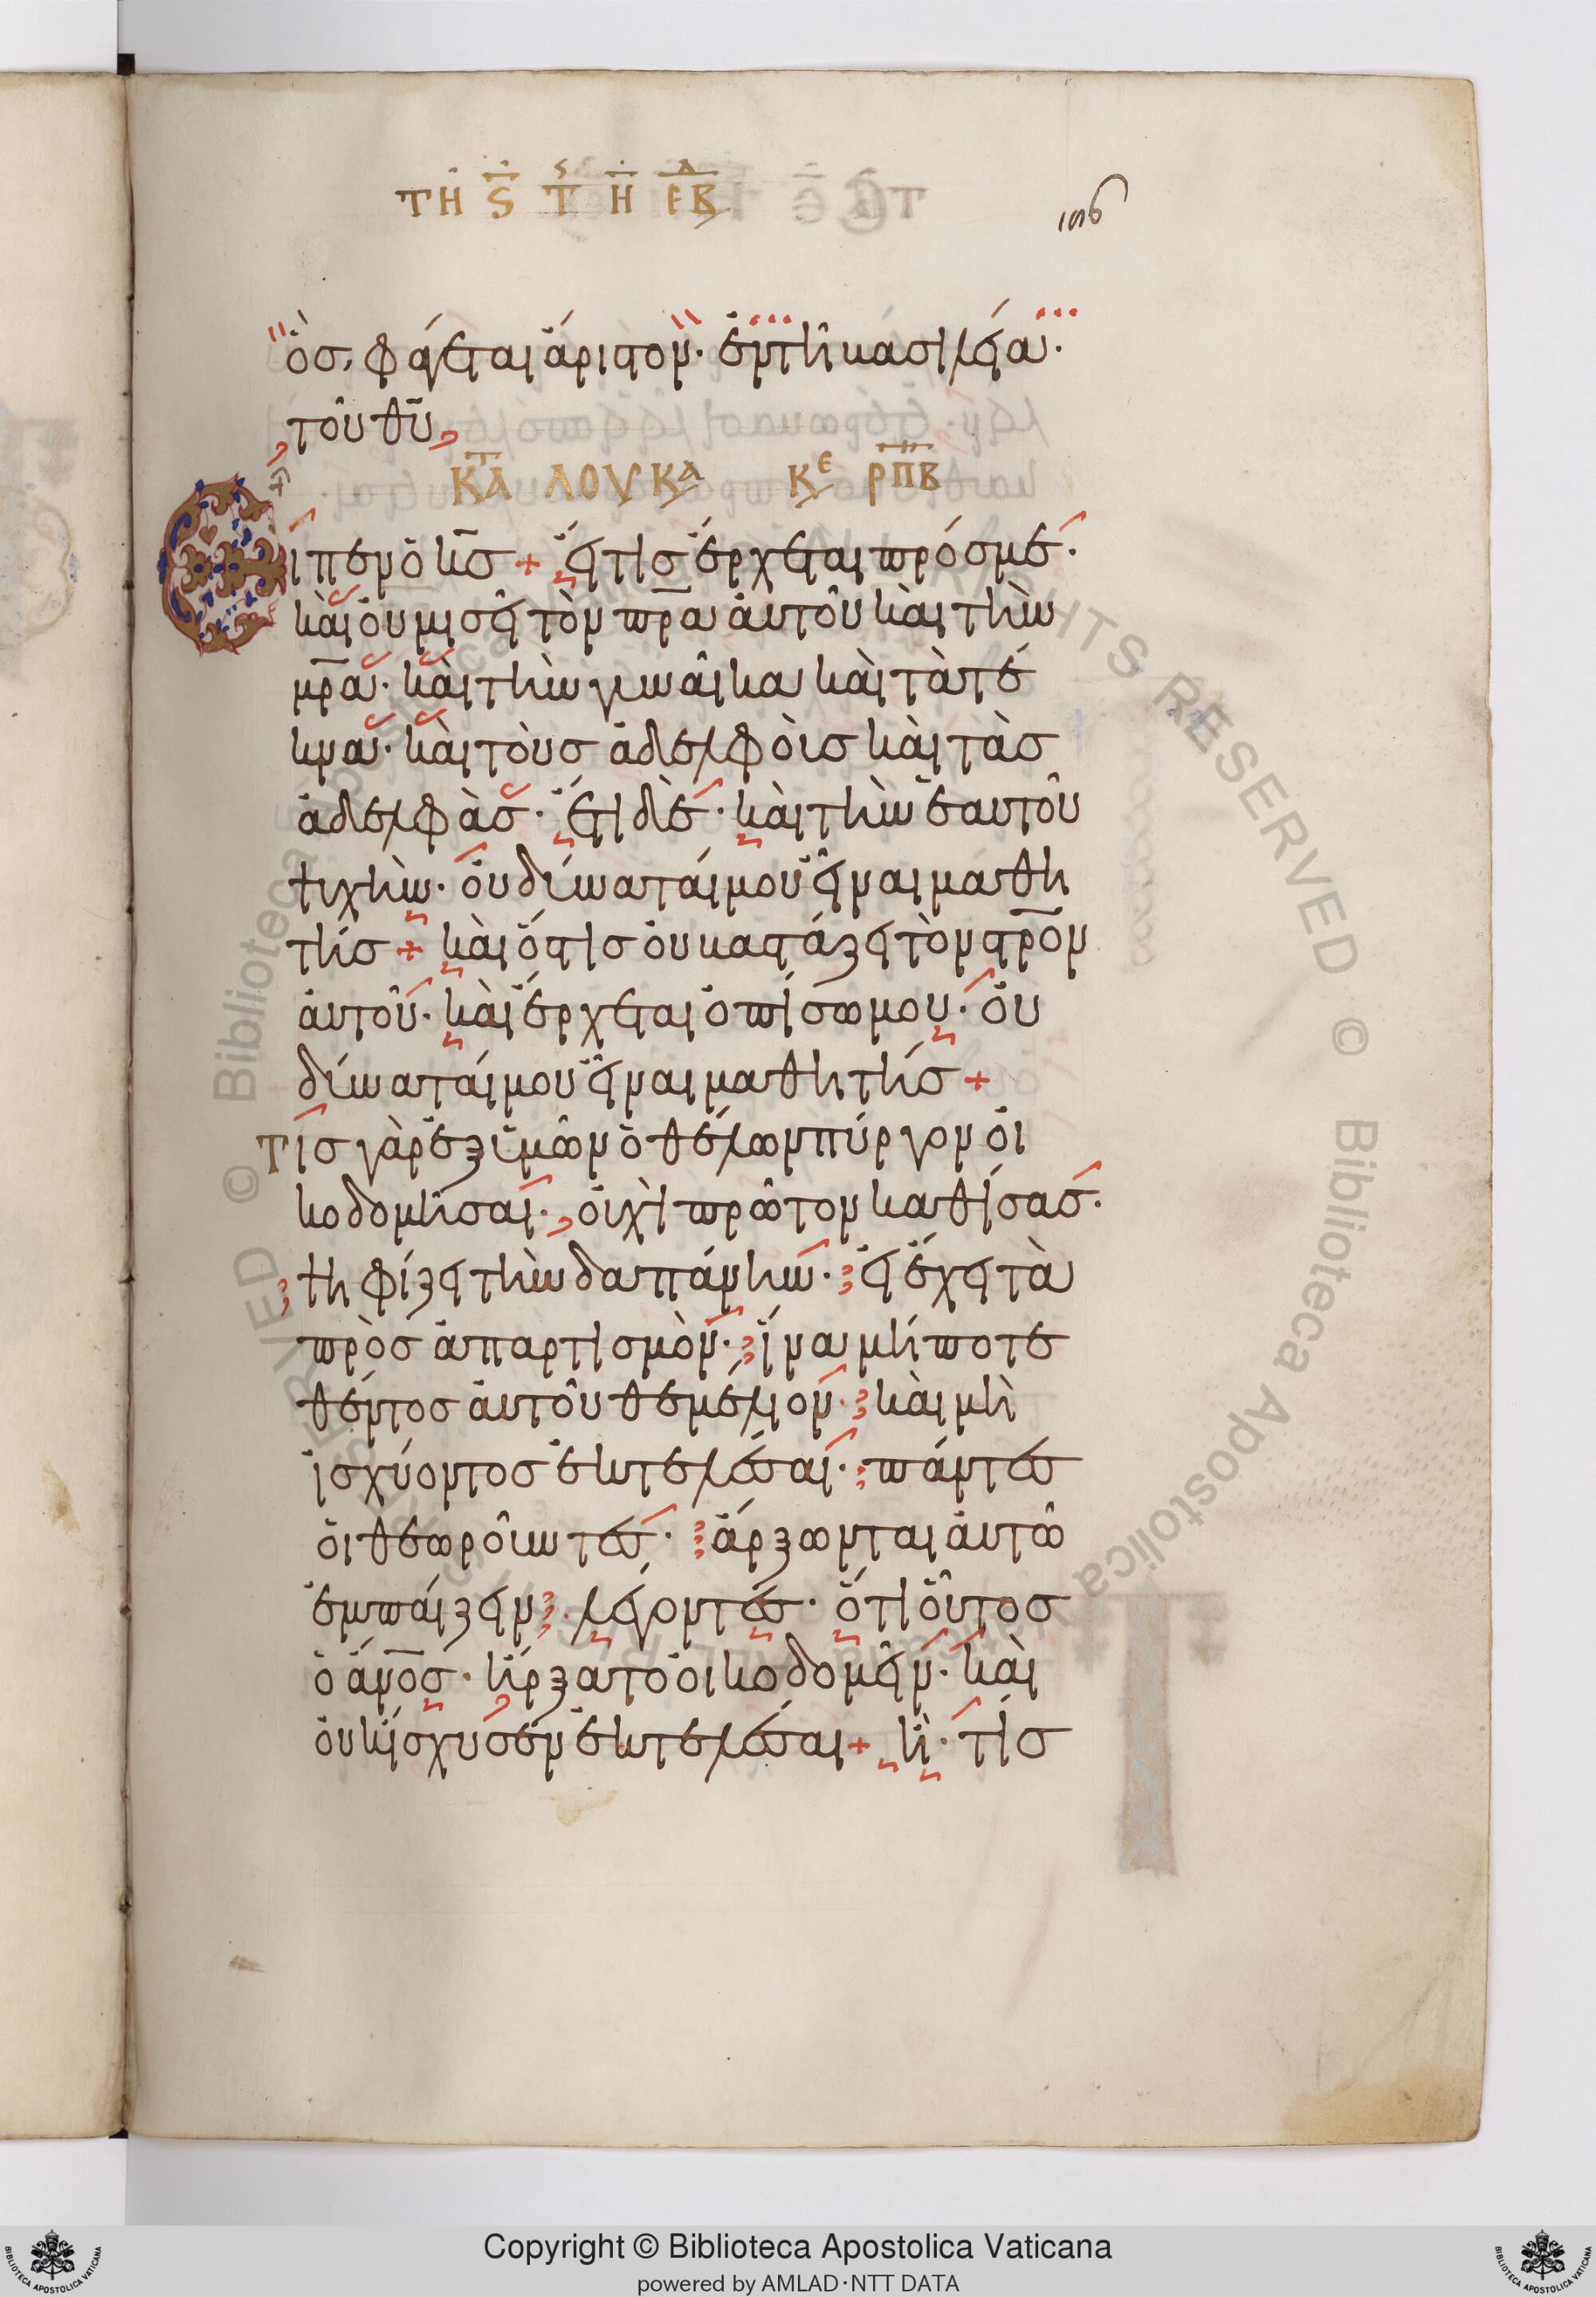 ΤΗ Ϛ Τ Η ΕΒΔ
156
ὃσ, φάγεται ἄριστον· ἐν τῆ βασιλεία·
τοῦ θ̅υ̅
ΚΑΤ ΛΟΥΚΑ ΚΕ ΡΠΒ
ιπεν ὁ κ̅σ̅ + εἴ τισ ἔρχεται πρόσ με·
καὶ οὐ μισεῖ τὸν π̅ρ̅α αὐτοῦ καὶ τὴν
μ̅ρ̅α· καὶ τὴν γυναῖκα καὶ τὰ τέ
κνα· καὶ τοὺσ ἀδελφοὺσ καὶ τὰσ
ἀδελφὰσ· ἔτι δὲ· καὶ τὴν ἑαυτοῦ
ψυχὴν· οὐ δύναταί μου εἶναι μαθη
τήσ + καὶ ὅστισ οὐ βαστάζει τὸν σ̅ρ̅ον
αὐτοῦ· καὶ ἔρχεται ὀπίσω μου· οὐ
δύναταί μου εἶναι μαθητήσ +
Τίσ γὰρ ἐξ ὑμῶν ὁ θέλων πύργον οἰ
κοδομῆσαι· οὐχὶ πρῶτον καθίσασ·
ψηφίζει τὴν δαπάνην· εἰ ἔχει τὰ
πρὸσ ἀπαρτισμὸν· ἵνα μήποτε
θέντοσ αὐτοῦ θεμέλιον· καὶ μὴ
ἰσχύοντοσ ἐκτελέσαι· πάντεσ
οἱ θεωροῦντεσ· ἄρξωνται αὐτῶ
ἐμπαίζειν· λέγοντεσ· ὅτι οὗτοσ
ὁ ἄν̅ο̅σ· ἤρξατο οἰκοδομεῖν· καὶ
οὐκ ἴσχυσεν ἐκτελέσαι + ἢ· τίσ
RESERVED © Biblioteca Apostolica
Copyright © Biblioteca Apostolica Vaticana
powered by AMLAD·NTT DATA
BIBLIOTECA APOSTOLICA VATICANA
BIBLIOTECA APOSTOLICA VATICANA